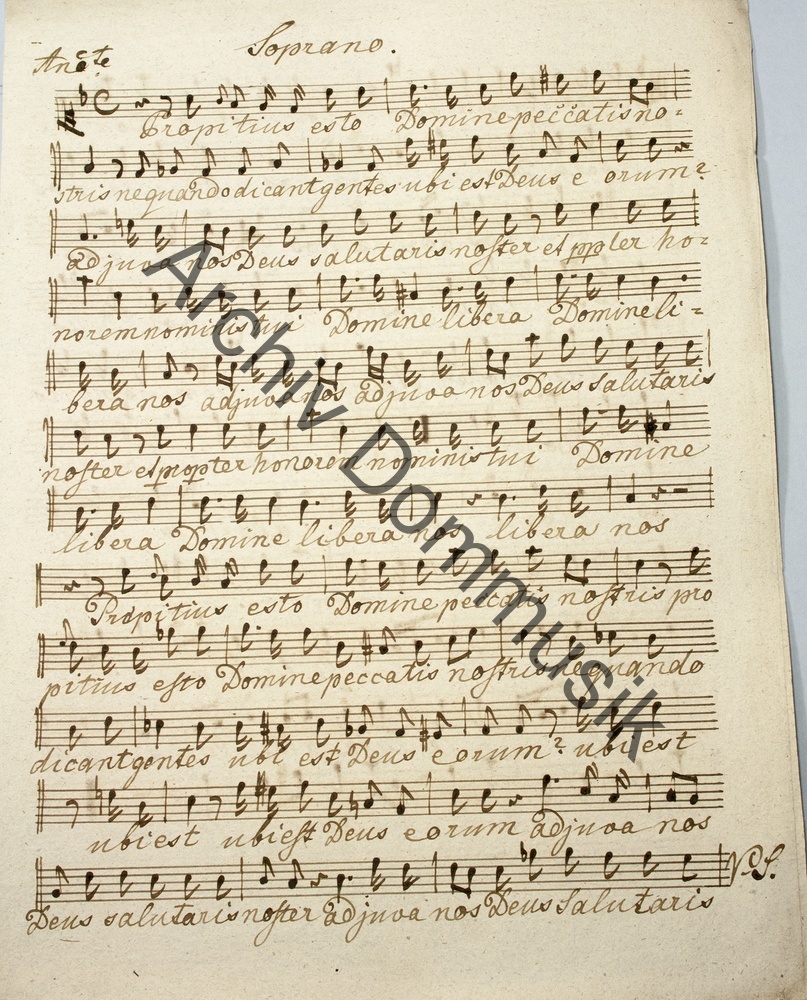 Soprano.
Andte
Propitius esto Domine peccatis no-
stris nequando dicant gentes ubi est Deus e orum?
adjuva nos Deus salutaris noster et ppter ho-
norem nominis tui Domine libera Domine li-
bera nos adjuva nos adjuva nos Deus salutaris
noster et propter honorem nominis tui Domine
libera Domine libera nos libera nos
Propitius esto Domine peccatis nostris pro
pitius esto Domine peccatis nostris nequando
dicant gentes ubi est Deus eorum? ubi est
ubi est ubi est Deus eorum adjuva nos
Deus salutaris noster adjuva nos Deus Salutaris
V.S.
Archiv Dommusik